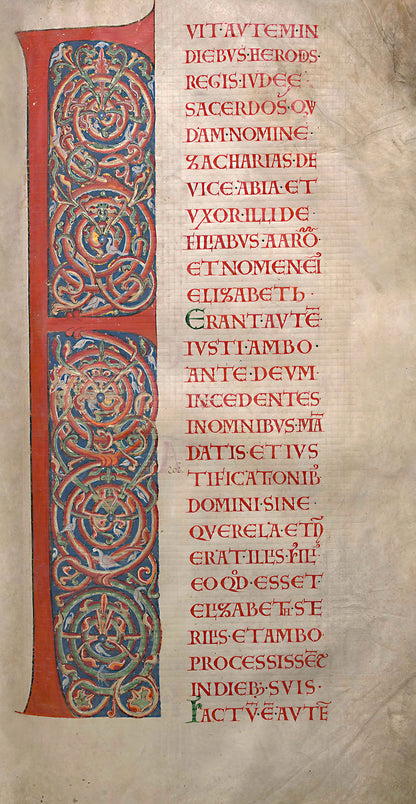 FVIT·AVTEM·IN
DIEBVS·HERODIS·
REGIS·IVDEE
SACERDOS·QVI
DAM·NOMINE·
ZACHARIAS·DE
VICE·ABIA·ET
VXOR·ILLI DE·
FILIABVS·AARŌ·
ET NOMEN EI
ELIZABETH·
ERANT·AVTĒ
IVSTI·AMBO·
ANTE·DEVM·
INCEDENTES
IN OMNIBVS·MĀ
DATIS·ET IVS
TIFICATIONIB;
DOMINI·SINE·
QVERELA·ET N̄
ERAT ILLIS·FILI9
EO QĐ·ESSET
ELIZABETH·STE
RILIS·ET AMBO·
PROCESSISSENT
IN DIEB;·SVIS·
FACTV̄·Ē·AVTĒ